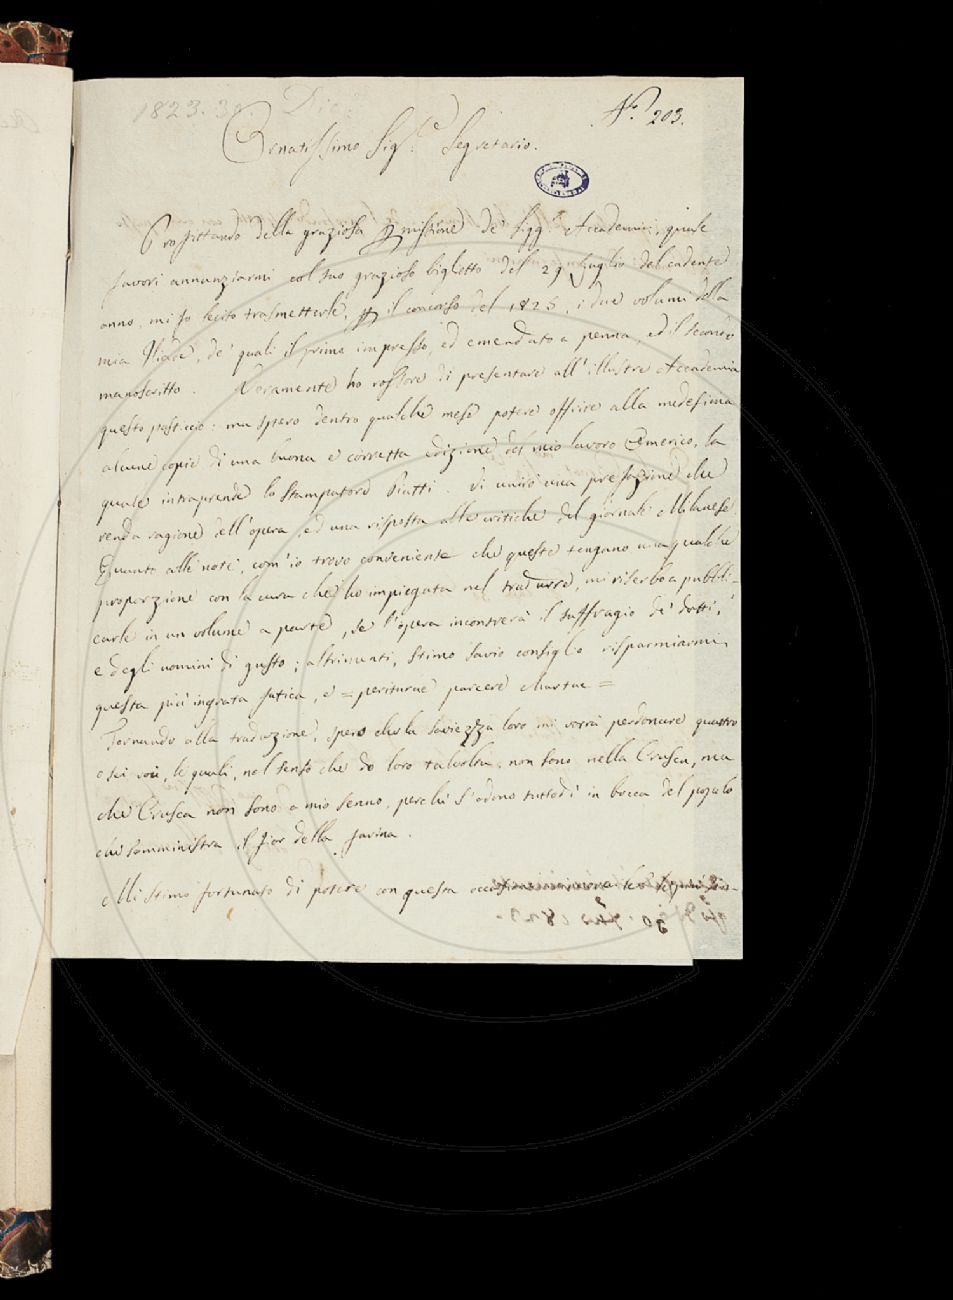 1823. 30. Dic.
N.° 203.
Ornatissimo Sig.re Segretario.
Profittando della graziosa permissione de' Sigg.ri Accademici, quale
favori annunziarmi col suo grazioso biglietto del 29 Luglio del cadente
anno, mi fo lecito trasmetterle, per il concorso del 1825, i due volumi della
mia Iliade, de' quali il primo impresso, ed emendato a penna, ed il secondo
manoscritto. Veramente ho rossore di presentare all'illustre Accademia
questo pasticcio: ma spero dentro qualche mese potere offrire alla medesima
alcune copie di una buona e corretta edizione del mio lavoro Omerico, la
quale intraprende lo Stampatore Piatti. Vi unirò una prefazione che
renda ragione dell'opera, ed una risposta alle critiche del giornale Milanese.
Quanto alle note, com'io trovo conveniente che queste tengano una qualche
proporzione con la cura che ho impiegata nel tradurre, mi riserbo a pubbli-
carle in un volume a parte, se l'opera incontrerà il suffragio de' dotti,
e degli uomini di gusto; altrimenti, stimo savio consiglio risparmiarmi
questa più ingrata fatica, e = periturae parcere chartae =
Tornando alla traduzione, spero che la saviezza loro mi vorrà perdonare quattro
o sei voci, le quali, nel senso che do loro talvolta, non sono nella Crusca, ma
che Crusca non sono a mio senno, perchè s'odono tuttodì in bocca del popolo
che somministra il fior della farina.
Mi stimo fortunato di potere con questa occasione